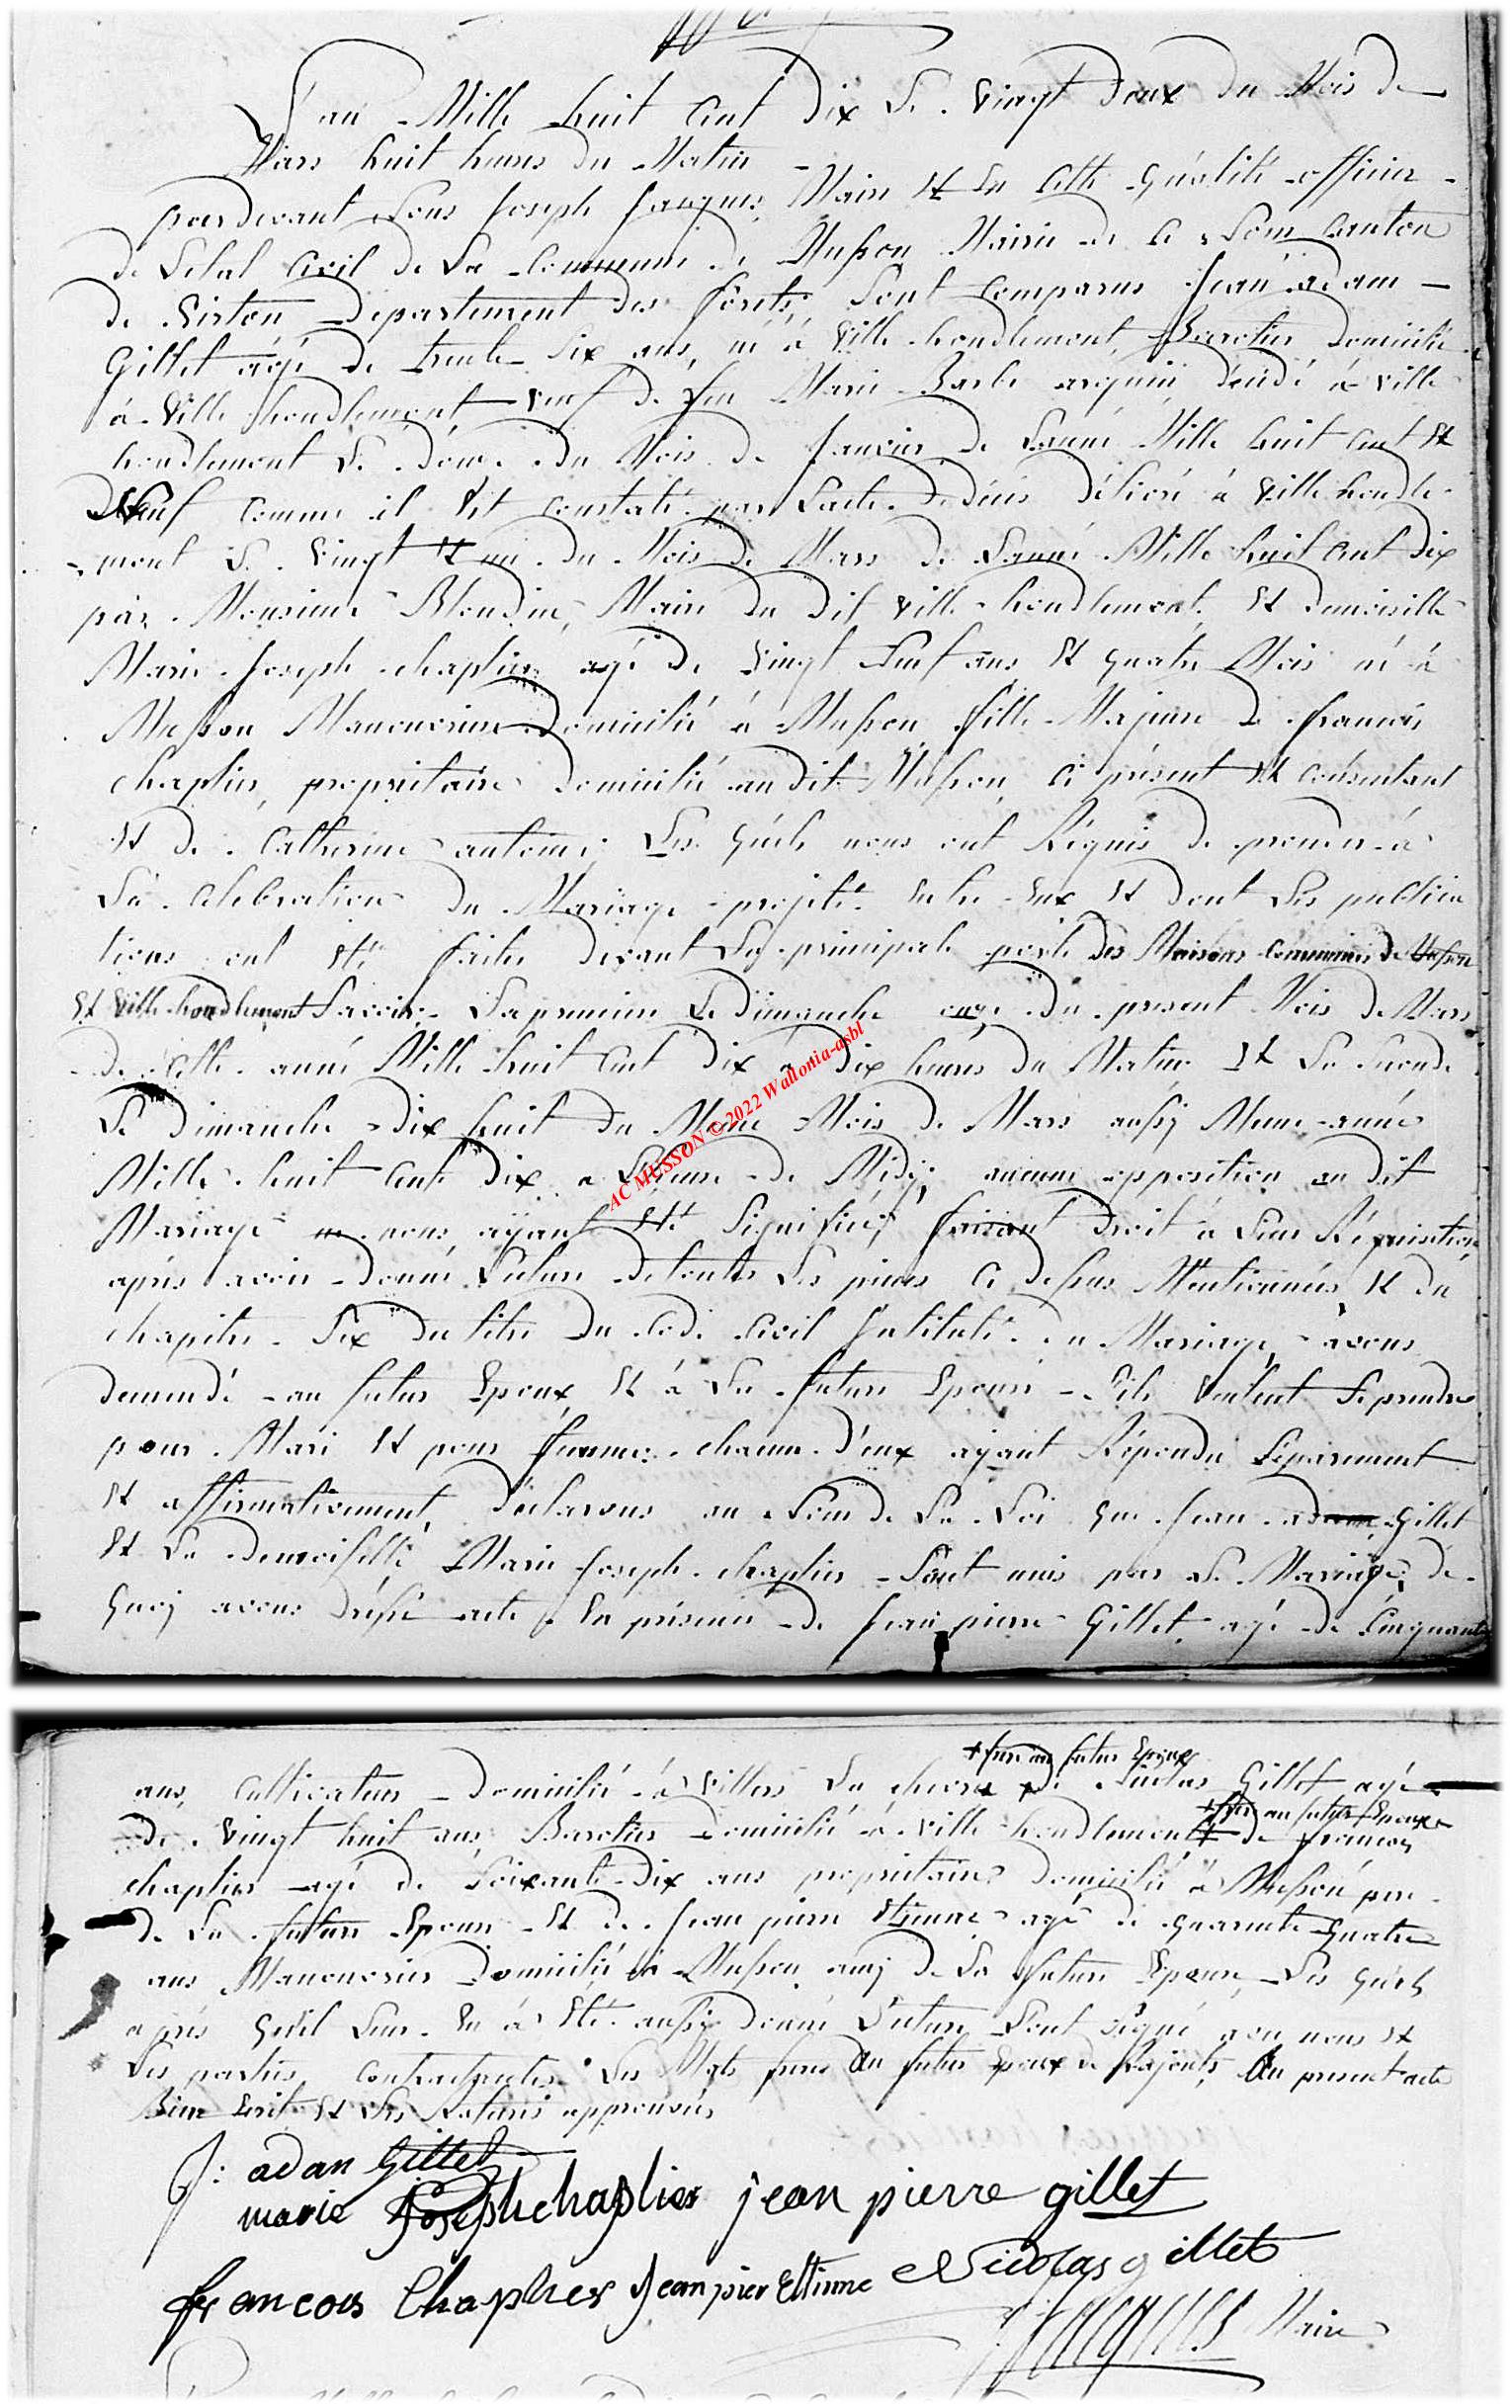 L'an Mille huit Cent Dix Le Vingt Deux du Mois de
Mars huit heures du Matin
pardevant Nous Joseph Jacques Maire Et En Cette Qualité officier
de L'etat Civil de La Commune de Musson Mairie de Ce Nom Canton
de Virton Departement des forets, Sont Comparus Jean adam
Gillet agé de trente Six ans, né à Ville houdlemont, Barotier Domicilié
à Ville houdlemont veuf de feu Marie Barbe arquin décédé à ville
houdlemont Le douze du Mois de Janvier de L'année Mille huit Cent Et
Neuf Comme il Est Constaté par L'acte de décès délivré à Ville houdle
mont Le Vingt Et un du Mois de Mars de L'année Mille huit Cent Dix
par Monsieur Blondin, Maire du dit Ville houdlemont, Et demoiselle
Marie Joseph chaplier agé de Vingt Neuf ans Et quatre Mois né à
Musson Manouvriere Domicilié à Musson fille Majeure de francois
chaplier, propriétaire Domicilié audit Musson Ci présent Et Consentant
Et de Catherine antoine, Les Quels nous ont Réquis de proceder à
La Celebration du Mariage projeté Entre Eux Et Dont Les publica
tions ont Eté faites Devant La principale porte Des Maisons Communes de Musson
Et Ville houdlement Savoir La premiere Le Dimanche onze du present Mois de Mars
de Cette année Mille huit Cent Dix à Dix heures du Matin Et La Seconde
Le Dimanche Dix huit Du Meme Mois de Mars aussy Meme année
Mille huit Cent Dix a L'heure de Midy, aucune opposition au dit
Mariage ne nous ayant Eté Signifiée, faisant Droit à Leur Réquisition
après avoir donné Lecture de toutes Les pieces Ci dessus Mentionnées, Et du
Chapitre Six du titre du Code Civil Intitulé du Mariage, avons
demendé au futur Epoux Et à La future Epouse S'ils Veulent Se prendre
pour Mari Et pour femme, chacun d'eux ayant Répondu Séparement
Et affirmativement, déclarons au Nom de La Loi que Jean adam Gillet
Et La Demoiselle Marie Joseph chaplier Sont unis par Le Mariage, de
Quoy avons dressé acte En présence de Jean pierre Gillet, agé de Cinquante
+ frere au futur Epoux
ans, Cultivateur Domicilié à Villers La chevre + de Nicolas Gillet agé
+ frere au futur Epoux
de Vingt huit ans, Barotier Domicilié à Ville houdlemont + de francois
chaplier agé de Soixante Dix ans propriétaire Domicilié à Musson pere
de La future Epouse Et de Jean pierre Etienne agé de quarante Quatre
ans Manouvrier Domicilié à Musson amy de La future Epouse, Les Quels
après Qu'il Leur En à Eté aussy Donné Lecture L'ont Signé avec nous Et
Les parties Contractantes Les Mots frere Au futur Epoux de Rajouts Au present acte
Bien Ecrit Et Les Ratures approuvés
J: adan Gillet
marie Joseph chaplier jean pierre gillet
francois Chaplier Jean pier Ettienne Nicolas gillet
J Jacques Maire
AC MUSSON ©2022 Wallonia-asbl